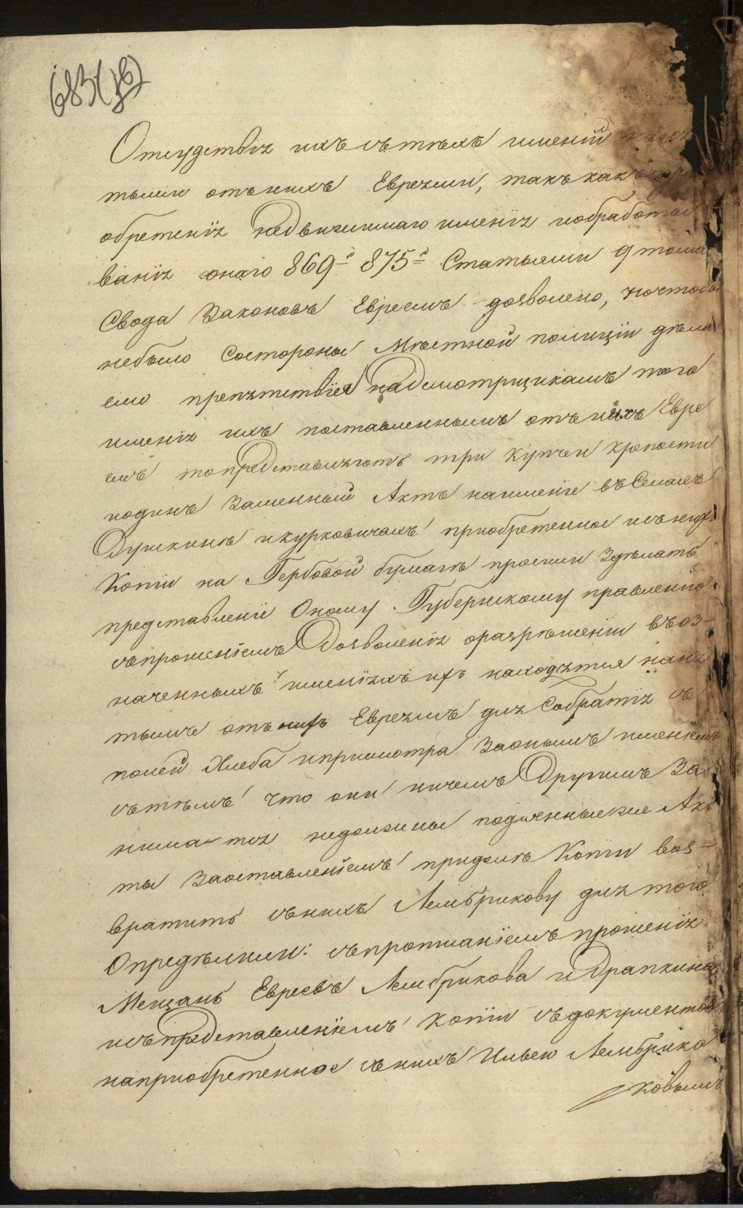 683(об)
Отсудствiя ихъ съ тѣхъ имѣнiй
тыми отъ нихъ Евреями, такъ какъ
обретенiя недвижимаго имѣнiя и обработы
ванiя онаго 869-й 875-й Статьями 9 тома
Свода Законовъ Евреямъ дозволено, и чтобы
небыло состороны Мѣстной полицiи дѣла
емо препятствiя надсмотрщикамъ того
имѣнiя ихъ поставленнымъ отъ нихъ Евре
ямъ то представляютъ три купчiи крепости
иодинъ Заменный Актъ на имѣнiе въ Селахъ
и курковичахъ приобретенное
Копiи на Гербовой бумагѣ просили Здѣлать
представленiе Оному Губернскому правленiю
съ прошенiемъ Дозволенiя о разрѣшенiи въ оз-
наченныхъ имѣнiяхъ ихъ находится наня
тымъ отъ нихъ Евреямъ для Собратiя съ
полей Хлеба и присмотра За онымъ имѣнiемъ
съ тѣмъ что они ничемъ Другимъ За
нимаются недолжны подлинные же Ак
ты Заоставленiемъ придѣлѣ Копiи воз-
вратить съ нихъ Лембрикову для того
Опредѣлили: съ прописанiемъ прошенiя
Мещанъ Евреевъ Лембрикова и Драпкина
и съ представленiемъ копiи съ документовъ
на приобретенное съ нихъ Ильею Лембрико
ковымъ